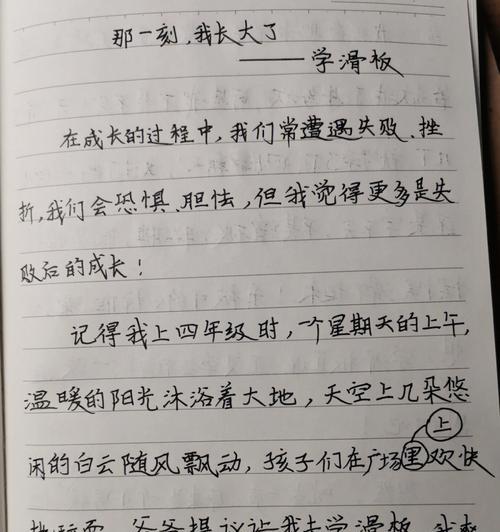 那一刻,我长大了
——学滑板
在成长的过程中,我们常遭遇失败、挫
折,我们会恐惧、胆怯,但我觉得更多是失
败后的成长!
记得我上四年级时,一个星期天的上午,
温暖的阳光沐浴着大地,天空上几朵悠
上
闲的白云随风飘动,孩子们在广场里欢快
地玩耍,爸爸提议让我去学滑板,我